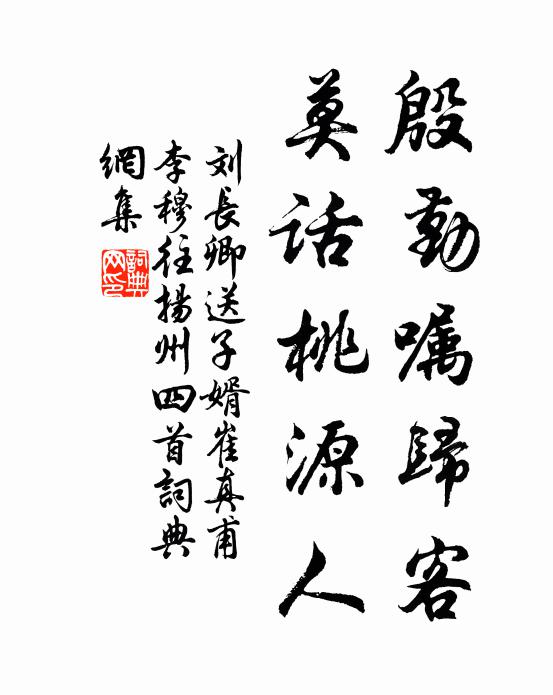 殷勤嘱歸客
莫话桃源人
刘長卿送子婿崔真甫
李穆往揚州四首詞典
網集
詞典網印